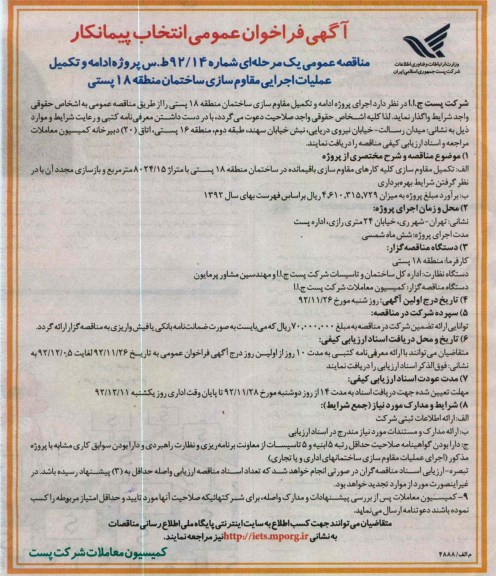 آگهی فراخوان عمومی انتخاب پیمانکار
مناقصه عمومی یک مرحله‌ای شماره ۹۲/۱۴ط.س پروژه ادامه و تکمیل
عملیات اجرایی مقاوم سازی ساختمان منطقه ۱۸ پستی
وزارت ارتباطات و فناوری اطلاعات
شرکت پست جمهوری اسلامی ایران
شرکت پست ج.ا.ا در نظر دارد اجرای پروژه ادامه و تکمیل مقاوم سازی ساختمان منطقه ۱۸ پستی را از طریق مناقصه عمومی به اشخاص حقوقی
واجد شرایط واگذار نماید. لذا کلیه اشخاص حقوقی واجد صلاحیت دعوت می‌گردد، با در دست داشتن معرفی‌نامه کتبی و رعایت شرایط و موارد
ذیل به نشانی: میدان رسالت- خیابان نیروی دریایی، نبش خیابان سهند، طبقه دوم، منطقه ۱۶ پستی، اتاق (۲۰) دبیرخانه کمیسیون معاملات
مراجعه و اسناد ارزیابی کیفی مناقصه را دریافت نمایند.
۱) موضوع مناقصه و شرح مختصری از پروژه:
الف: تکمیل مقاوم سازی کلیه کارهای مقاوم سازی باقیمانده در ساختمان منطقه ۱۸ پستی با متراژ ۸۰۲۴/۱۵ مترمربع و بازسازی مجدد آن با در
نظر گرفتن شرایط بهره‌برداری
ب: برآورد مبلغ پروژه به میزان ۴,۶۱۰,۳۱۵,۷۲۹ ریال براساس فهرست بهای سال ۱۳۹۲
۲) محل و زمان اجرای پروژه:
نشانی: تهران- شهر ری، خیابان ۲۴ متری رازی، اداره پست
مدت اجرای پروژه: شش ماه شمسی
۳) دستگاه مناقصه گزار:
کارفرما: منطقه ۱۸ پستی
دستگاه نظارت: اداره کل ساختمان و تاسیسات شرکت پست ج.ا.ا و مهندسین مشاور پرمایون
دستگاه مناقصه گزار: کمیسیون معاملات شرکت پست ج.ا.ا
۴) تاریخ درج اولین آگهی: روز شنبه مورخ ۹۲/۱۱/۲۶
۵) سپرده شرکت در مناقصه:
توانایی ارائه تضمین شرکت در مناقصه به مبلغ ۷۰,۰۰۰,۰۰۰ ریال که می‌بایست به صورت ضمانت‌نامه بانکی یا فیش واریزی به مناقصه گزار ارائه گردد.
۶) تاریخ و محل دریافت اسناد ارزیابی کیفی:
متقاضیان می‌توانند با ارائه معرفی نامه کتبی به مدت ۱۰ روز از اولین روز درج آگهی فراخوان عمومی به تاریخ ۹۲/۱۱/۲۶ لغایت ۹۲/۱۲/۰۵ به
نشانی: فوق‌الذکر اسناد ارزیابی را دریافت نمایند.
۷) مدت عودت اسناد ارزیابی کیفی:
مهلت تعیین شده جهت دریافت اسناد به مدت ۱۴ از روز دوشنبه مورخ ۹۲/۱۱/۲۸ تا پایان وقت اداری روز یکشنبه ۹۲/۱۲/۱۱
۸) شرایط و مدارک مورد نیاز (جمع شرایط):
الف: ارائه اطلاعات ثبتی شرکت
ب: ارائه مدارک و مستندات مورد نیاز مندرج در اسناد ارزیابی
ج: دارا بودن گواهینامه صلاحیت حداقل رتبه ۵ ابنیه و ۵ تاسیسات از معاونت برنامه‌ریزی و نظارت راهبردی و دارا بودن سوابق کاری مشابه با پروژه
مذکور (اجرای عملیات مقاوم سازی ساختمانهای اداری و یا تجاری)
تبصره- ارزیابی اسناد مناقصه گران در صورتی انجام خواهد شد که تعداد اسناد مناقصه ارزیابی واصله حداقل به (۳) پیشنهاد رسیده باشد. در
غیر اینصورت مورد از موارد تجدید خواهد بود.
۹- کمیسیون معاملات پس از بررسی پیشنهادات و مدارک واصله، برای شرکتهائیکه صلاحیت آنها مورد تایید و حداقل امتیاز مربوطه را کسب
نموده باشند دعوتنامه ارسال می‌نماید.
متقاضیان می‌توانند جهت کسب اطلاع به سایت اینترنتی پایگاه ملی اطلاع رسانی مناقصات
به نشانی http://iets.mporg.ir نیز مراجعه نمایند.
کمیسیون معاملات شرکت پست
م الف/۴۸۸۸